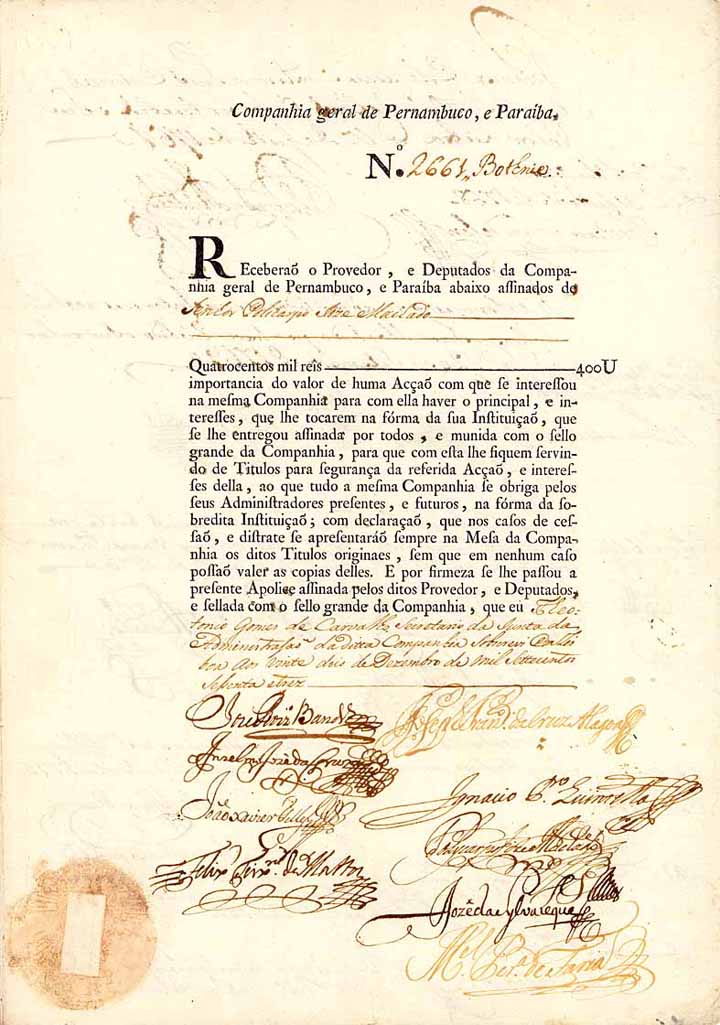 Companhia geral de Pernambuco, e Paraiba,
N.º 2661
REceberaõ o Provedor, e Deputados da Compa-
nhia geral de Pernambuco, e Paraíba abaixo aſſinados do
Quatrocentos mil reis 400U
importancia do valor de huma Acçaõ com que ſe intereſſou
na meſma Companhia para com ella haver o principal, e in-
tereſſes, que lhe tocarem na fórma da ſua Inſtituiçaõ, que
ſe lhe entregou aſſinada por todos, e munida com o ſello
grande da Companhia, para que com eſta lhe fiquem ſervin-
do de Titulos para ſegurança da referida Acçaõ, e intereſ-
ſes della, ao que tudo a meſma Companhia ſe obriga pelos
ſeus Adminiſtradores preſentes, e futuros, na fórma da ſo-
bredita Inſtituiçaõ; com declaraçaõ, que nos caſos de ceſ-
ſaõ, e diſtrate ſe apreſentaráõ ſempre na Meſa da Compa-
nhia os ditos Titulos originaes, ſem que em nenhum caſo
poſſaõ valer as copias delles. E por firmeza ſe lhe paſſou a
preſente Apolice aſſinada pelos ditos Provedor, e Deputados,
e ſellada com o ſello grande da Companhia, que eu Theo-
tonio Gomes de Carvalho Secretario da Junta da
Administrasaõ da ditta Companhia
boa aos vinte dois de Dezembro de mil Settecentos
Sesenta e trez
Ignacio P.ro Quintella
João Xavier Telles
Jozé da Sylva Leque
M.el Per.ª de Faria